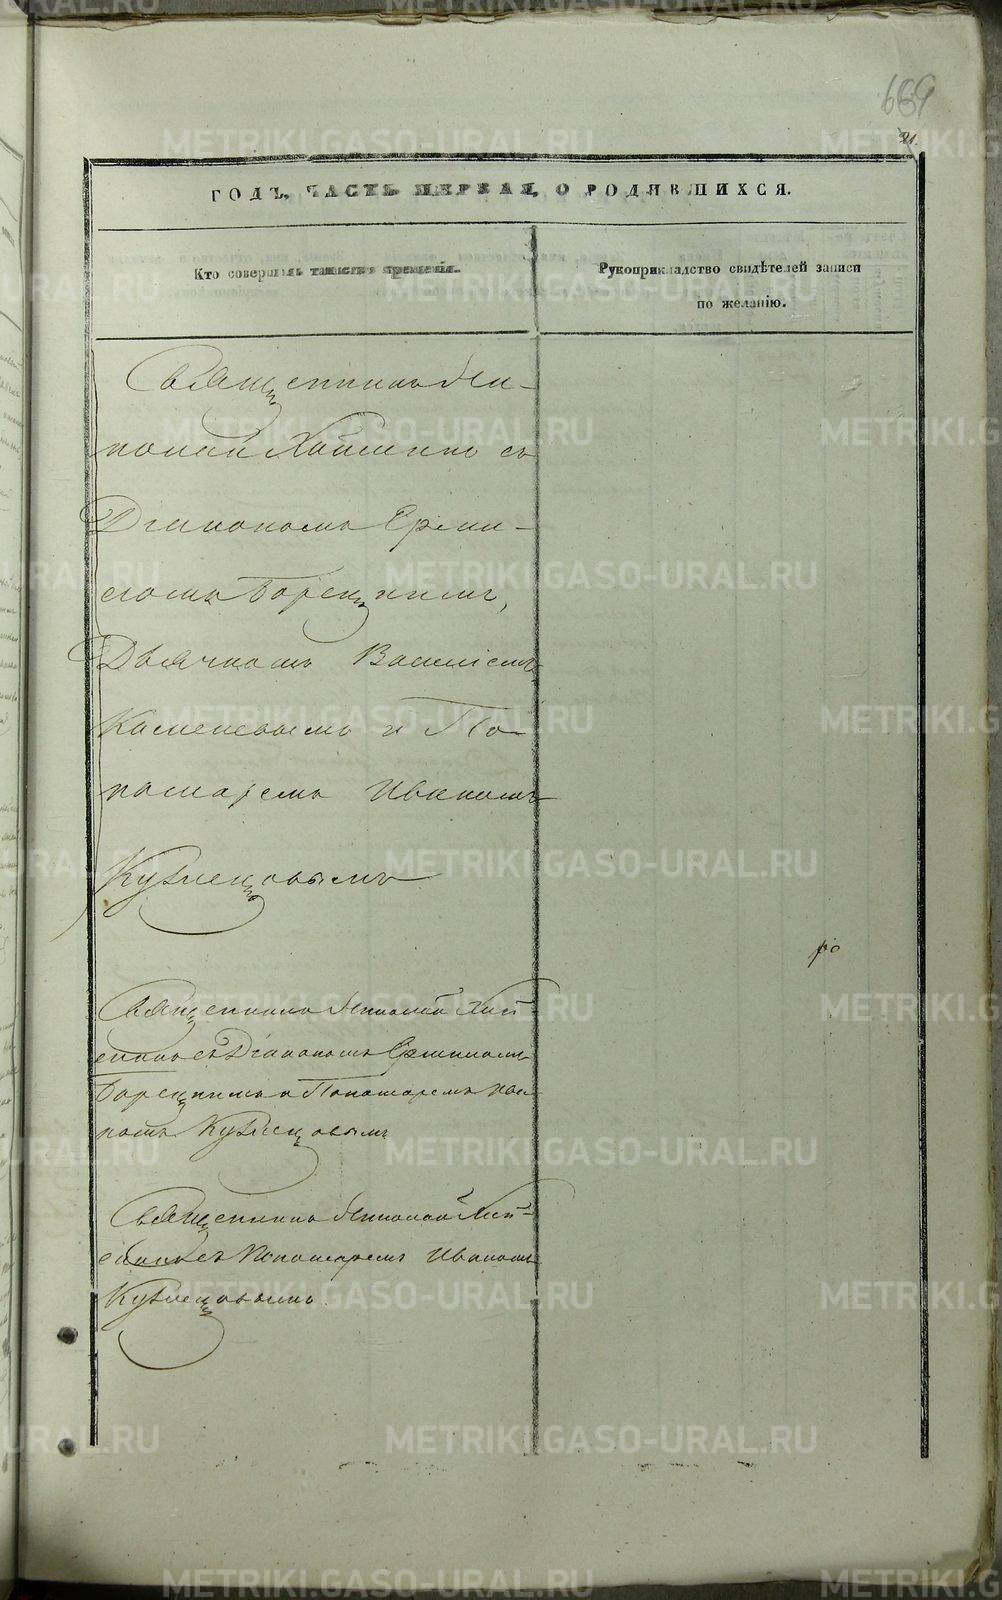 669
21.
ГОДЪ, ЧАСТЬ ПЕРВАЯ, О РОДИВШИХСЯ.
Кто совершалъ таинство крещенія.
Рукоприкладство свидѣтелей записи
по желанію.
Священникъ Ни-
колай съ
Діакономъ Ерми-
ломъ Борецкимъ,
Дьячкомъ Василіемъ
Каменевымъ и По-
номаремъ Иваномъ
Кузнецовымъ
Священникъ Николай
съ Діакономъ Ермиломъ
Борецкимъ и Пономаремъ Ива-
номъ Кузнецовымъ
Священникъ Николай
съ Пономаремъ Иваномъ
Кузнецовымъ.
METRIKI.GASO-URAL.RU